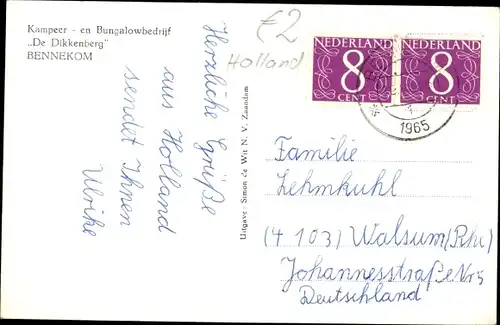 Kampeer - en Bungalowbedrijf
„De Dikkenberg"
BENNEKOM
€2
Holland
Herzliche Grüße
aus Holland
sendet Ihnen
Ulrike
Uitgave: Simon de Wit N. V. Zaandam
NEDERLAND
8
CENT
NEDERLAND
8
CENT
1965
Familie
Lehmkuhl
(4103) Walsum (Rhr)
Johannesstraße Nr 5
Deutschland